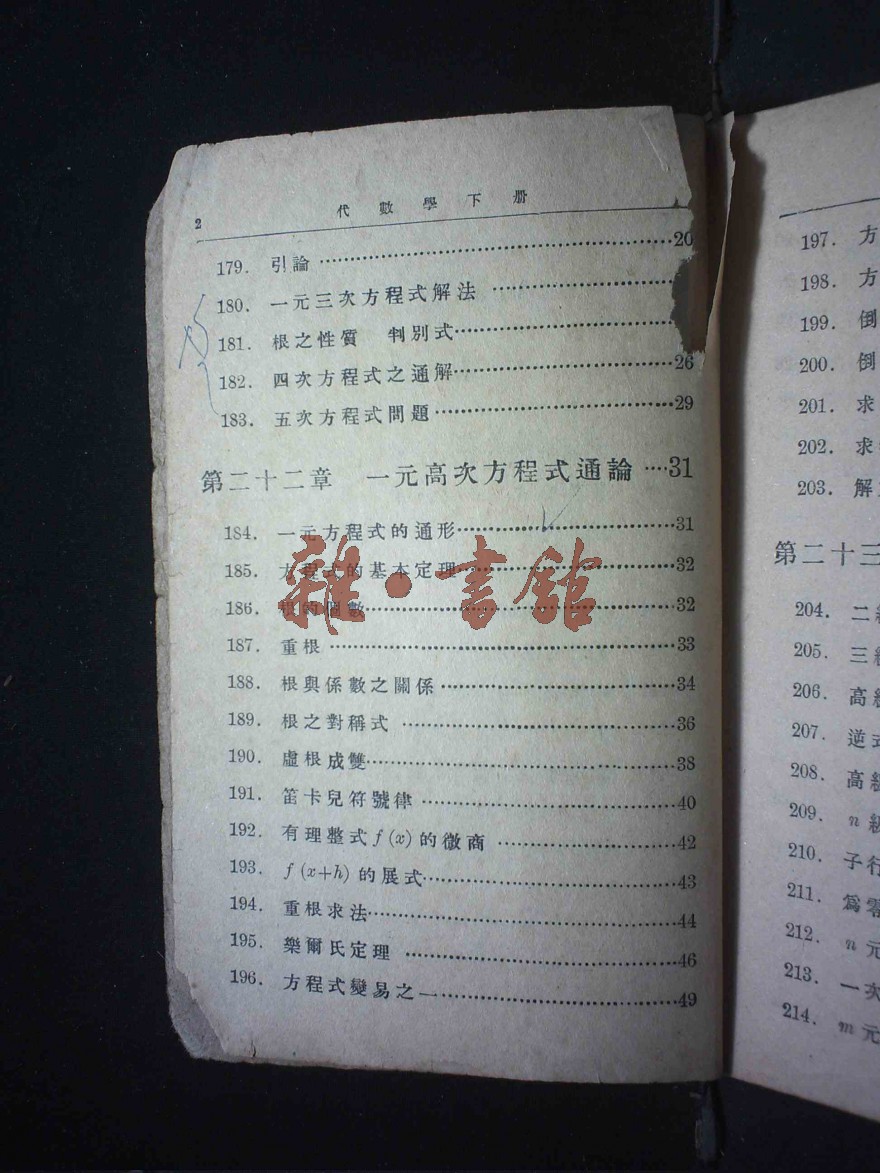 2 代數學下册
179. 引論 …… 20
180. 一元三次方程式解法 ……
181. 根之性質 判別式 ……
182. 四次方程式之通解 …… 26
183. 五次方程式問題 …… 29
第二十二章 一元高次方程式通論 …… 31
184. 一元方程式的通形 …… 31
185. 方程式的基本定理 …… 32
186. 根的個數 …… 32
187. 重根 …… 33
188. 根與係數之關係 …… 34
189. 根之對稱式 …… 36
190. 虛根成雙 …… 38
191. 笛卡兒符號律 …… 40
192. 有理整式 f (x) 的微商 …… 42
193. f (x+h) 的展式 …… 43
194. 重根求法 …… 44
195. 樂爾氏定理 …… 46
196. 方程式變易之一 …… 49
雜·書館
197. 方
198. 方
199. 倒
200. 倒
201. 求
202. 求
203. 解
第二十三
204. 二
205. 三
206. 高
207. 逆
208. 高
209. n
210. 子行
211. 爲零
212. n 元
213. 一次
214. m 元